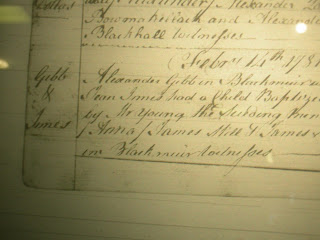 Alexander
Bowmakerhach and Alexander
Blackhall Witnesses
Febry 14th 178
Gibb Alexander Gibb in Blackmuir
& Jean Jones had a Child Baptized
Jones by Mr Young the
/Anna/ James Mill & James
in Blackmuir witnesses